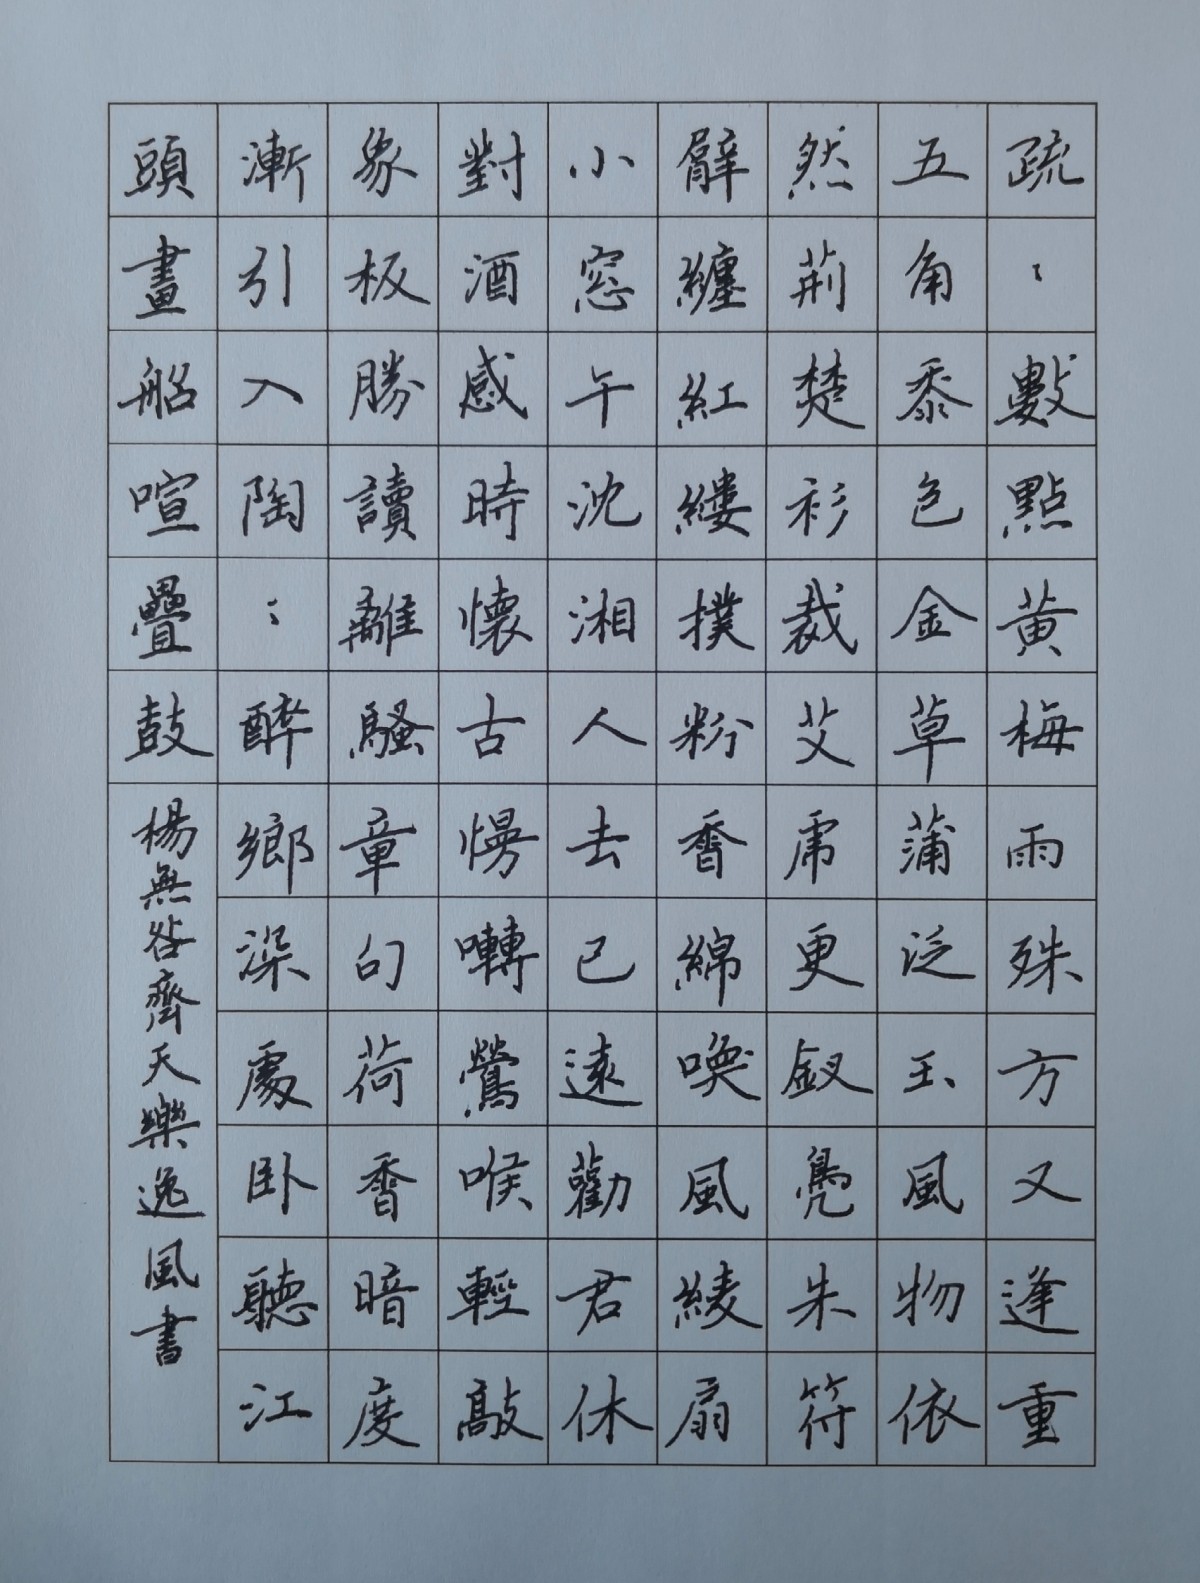 疏〻數點黃梅雨殊方又逢重
五角黍包金草蒲泛玉風物依
然荊楚衫裁艾虎更釵鳧朱符
臂纏紅縷撲粉香綿喚風綾扇
小窓午沈湘人去已遠勸君休
對酒感時懷古慢囀鶯喉輕敲
象板勝讀離騷章句荷香暗度
漸引入陶〻醉鄉深處卧聽江
頭畫船喧疊鼓
楊無咎齊天樂逸風書